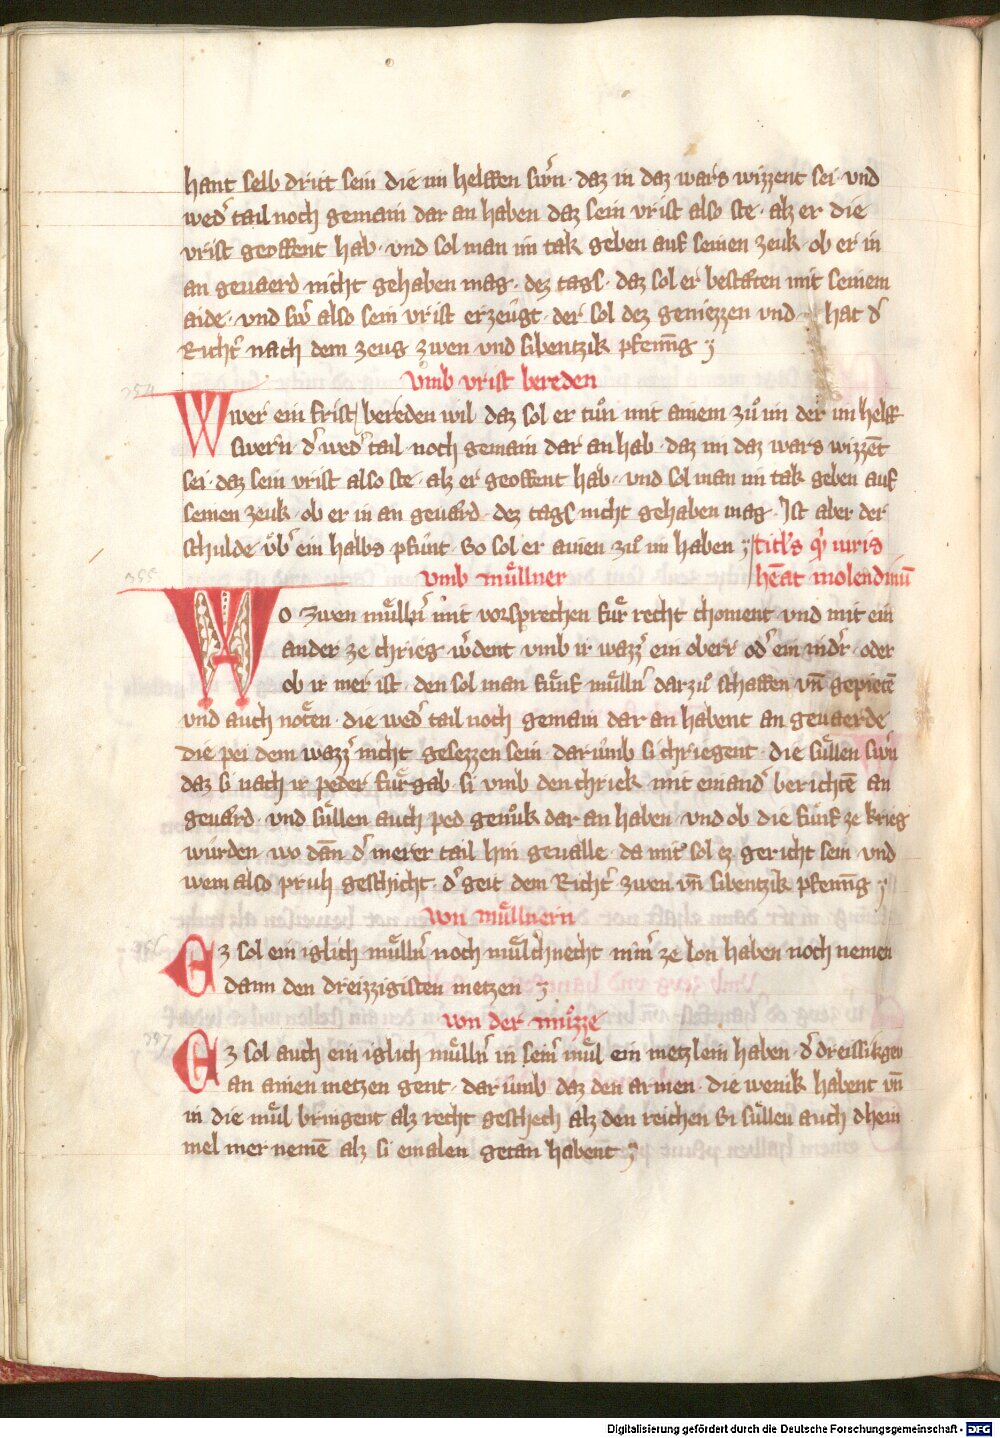 hant selb dritt sein die im helffen swͤrn · daz in daz wars wizzent sei · vnd
wedʼ tail noch gemain dar an haben daz sein vrist also ste · alz er die
vrist geoffent hab · vnd sol man im tak geben auf seinen zeuk · ob er in
an geuaerd nicht gehaben mag · dez tags · daz sol er bestaͤten mit seinem
aide · vnd swʼ also sein vrist erzeugt · der sol dez geniezzen vnd hat dʼ
Richtʼ nach dem zeug zwen vnd sibentzik pfeñig
vmb vrist bereden
354
Wwer ein frist bereden wil daz sol er tuͦn mit ainem zuͦ im der im helff
swern · dʼ wedʼ tail noch gemain dar an hab · daz im daz wars wizzēt
sei · daz sein vrist also ste · alz er geoffent hab · vnd sol man im tak geben auf
seinen zeuk · ob er in an geuaͤrd · dez tags nicht gehaben mag · Ist aber der
schulde vͤbʼ ein halbs pfunt · So sol er ainen zuͦ im haben titlʼs qʼ iuris
355
vmb muͤllner heāt molendinū
Wo zwen muͤllnʼ mit vorsprechen fuͤr recht choment vnd mit ein
ander ze chrieg wʼdent vmb ir wazzʼ ein oberr odʼ ein nidʼr · oder
ob ir mer ist · den sol man fuͤnf muͤllnʼ darzuͦ schaffen vn̄ gepietē
vnd auch noͤten · die wedʼ tail noch gemain dar an habent an geuaerde
die pei dem wazzʼ nicht gesezzen sein · darumb si chriegent · die suͤllen swʼn
daz si nach ir peder fuͤrgab · si vmb den chriek mit einandʼ berichtē an
geuaͤrd · vnd suͤllen auch ped genuͦk dar an haben · vnd ob die fuͤnf ze krieg
wurden · wo dan̄ dʼ merer tail hin geualle · da mit sol ez gericht sein · vnd
wem also pruh geschicht · dʼ geit dem Richtʼ zwen vn̄ sibentzik pfeñig
von muͤllnern
356
Ez sol ein iglich muͤllnʼ noch muͤlchnecht mʼ ze lon haben noch nemen
dann den dreizzigisten metzen
von der muͤzze
357
Ez sol auch ein iglich muͤllnʼ in seinʼ muͤl ein metzlein haben · dʼ dreissik gen
an ainen metzen gent · dar umb daz den armen · die wenik habent vn̄
in die muͤl bringent alz recht geschech alz den reichen Si suͤllen auch dhein
mel mer nemē alz si emalen getan habent
Digitalisierung gefördert durch die Deutsche Forschungsgemeinschaft - DFG